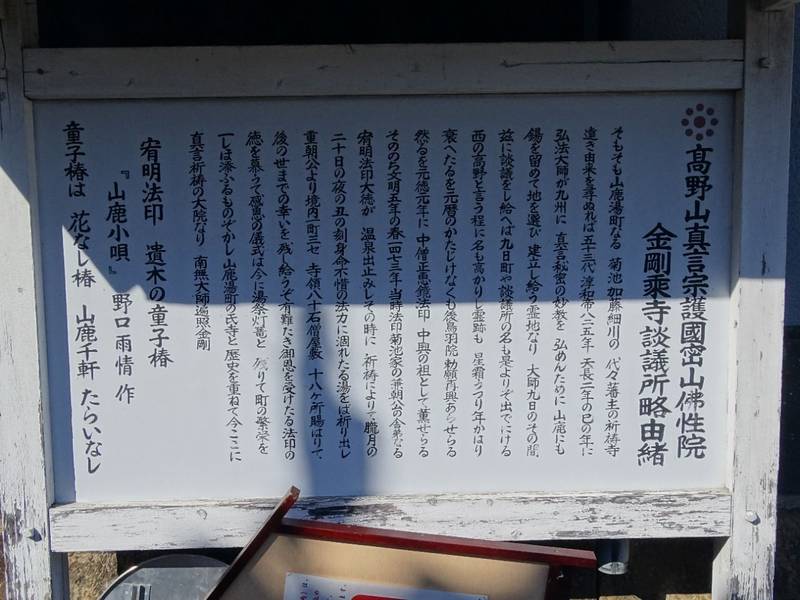 高野山真言宗護國密山佛性院
金剛乘寺談議所略由緒
そもそも山鹿湯町なる 菊池加藤細川の 代々藩主の祈祷寺
遠き由来を尋ぬれば五十三代 淳和帝八二五年 天長二年の巳の年に
弘法大師が九州に 真言秘密の妙教を 弘めんために 山鹿にも
錫を留めて地を選び 建立し給う霊地なり 大師九日のその間
茲に談議をし給へば九日町や談議所の名も是よりぞ出でにける
西の高野と言う程に名も高かりし霊跡も 星霜うつり年かはり
衰へたるを元暦のかたじけなくも後鳥羽院 勅願再興あらせらる
然るを元徳元年に 中僧正惠濟法印 中興の祖として薫ぜらる
そののち文明五年の春一四七三年 当時法印菊池家の兼朝公の舎弟なる
宥明法印大徳が 温泉出止みしその時に 祈祷によりて朧月の
二十日の夜の丑の刻身命不惜の法力に涸れたる湯をば祈り出し
重朝公より境内二町三セ 寺領八十石僧屋敷 十八ヶ所賜はりて、
後の世までの幸いを 残し給うぞ有難たき御恩を受けたる法印の
徳を慕うて感恩の儀式は今に湯祭灯篭と 残りて町の繁栄を
一しほ添ふるものぞかし 山鹿湯町の氏寺と 歴史を重ねて今ここに
真言祈祷の大院なり 南無大師遍照金剛
宥明法印 遺木の童子椿
『山鹿小唄』 野口雨情 作
童子椿は 花なし椿 山鹿千軒 たらいなし